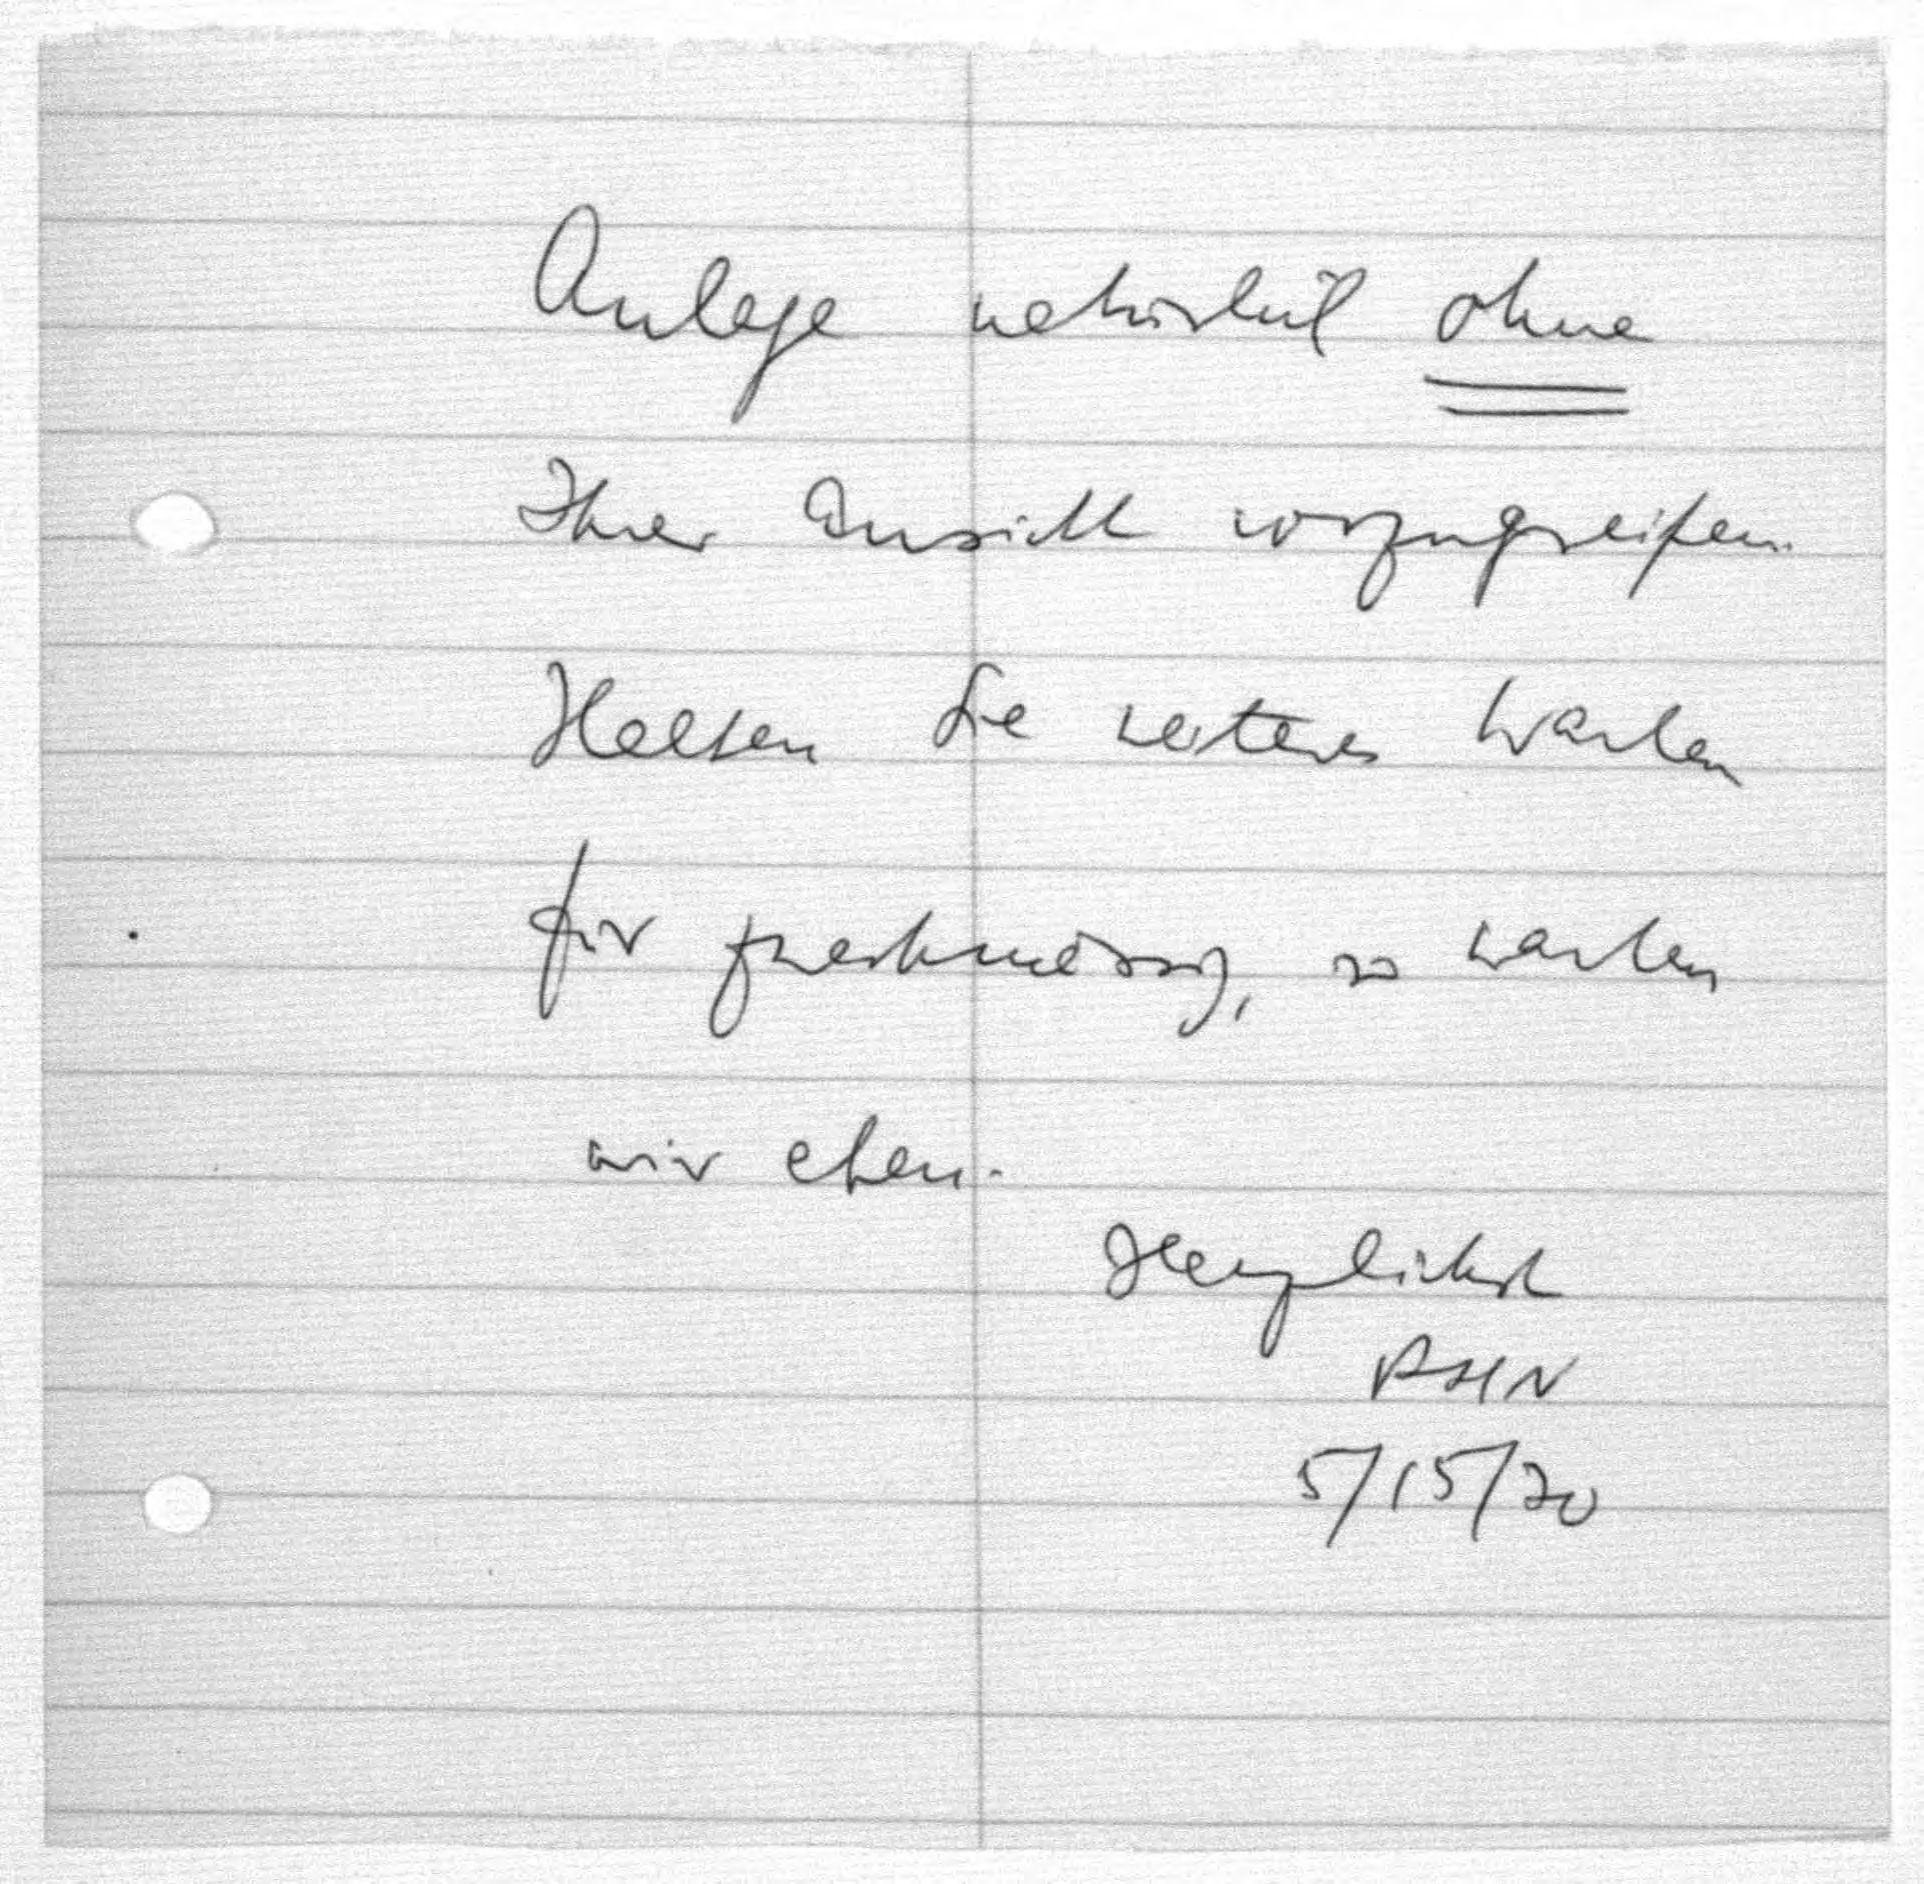 Anlage natürlich ohne
Ihrer Ansicht vorzugreifen.
Halten Sie weiteres Warten
für zweckmässig, so warten
wir eben.
Herzlichst
5/15/70